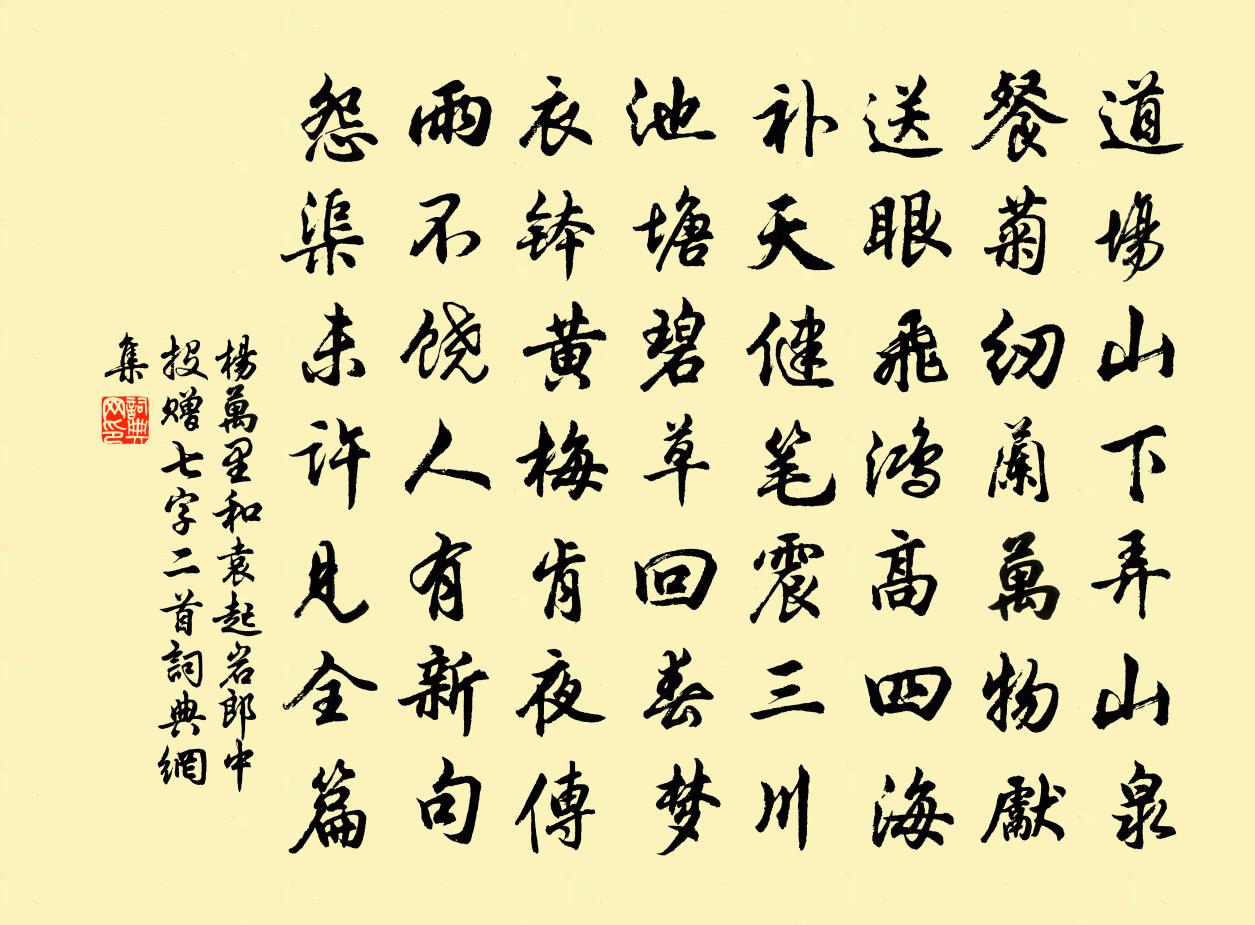 道場山下弄山泉
餐菊纫蘭萬物獻
送眼飛鸿高四海
补天健笔震三川
池塘碧草回春梦
衣钵黄梅肯夜傳
雨不饶人有新句
怨渠未许見全篇
楊萬里和袁起岩郎中
投赠七字二首詞典網
集
詞典
网印